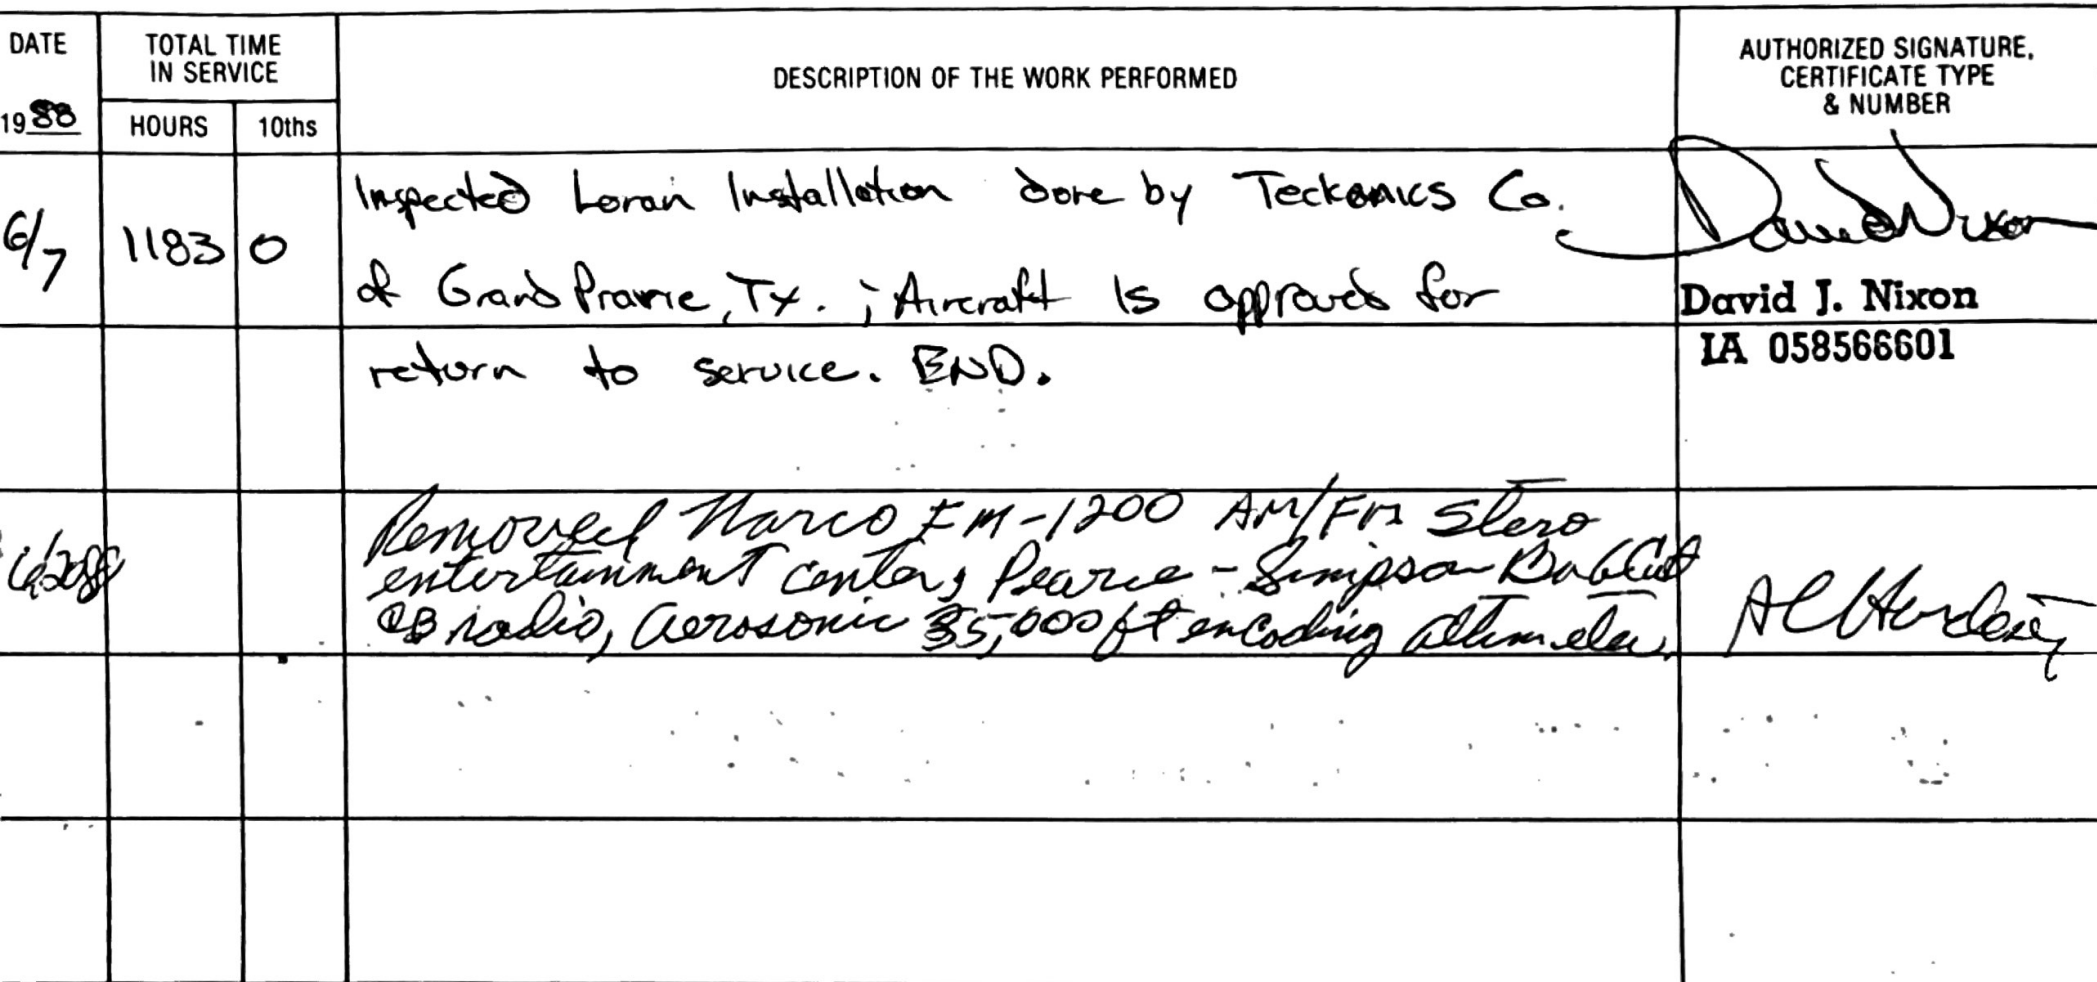 DATE
TOTAL TIME
IN SERVICE
DESCRIPTION OF THE WORK PERFORMED
AUTHORIZED SIGNATURE,
CERTIFICATE TYPE
& NUMBER
1988
HOURS
10ths
6/7
1183
0
Inspected Loran Installation done by Teckonics Co.
of Grand Prairie, Tx. ; Aircraft is approved for
return to service. END.
David Nixon
David J. Nixon
IA 058566601
Removed Narco EM-1200 AM/FM Stero
entertainment center, Pearce-Simpson BobCat
CB radio, Aerosonic 35,000 ft encoding altimeter.